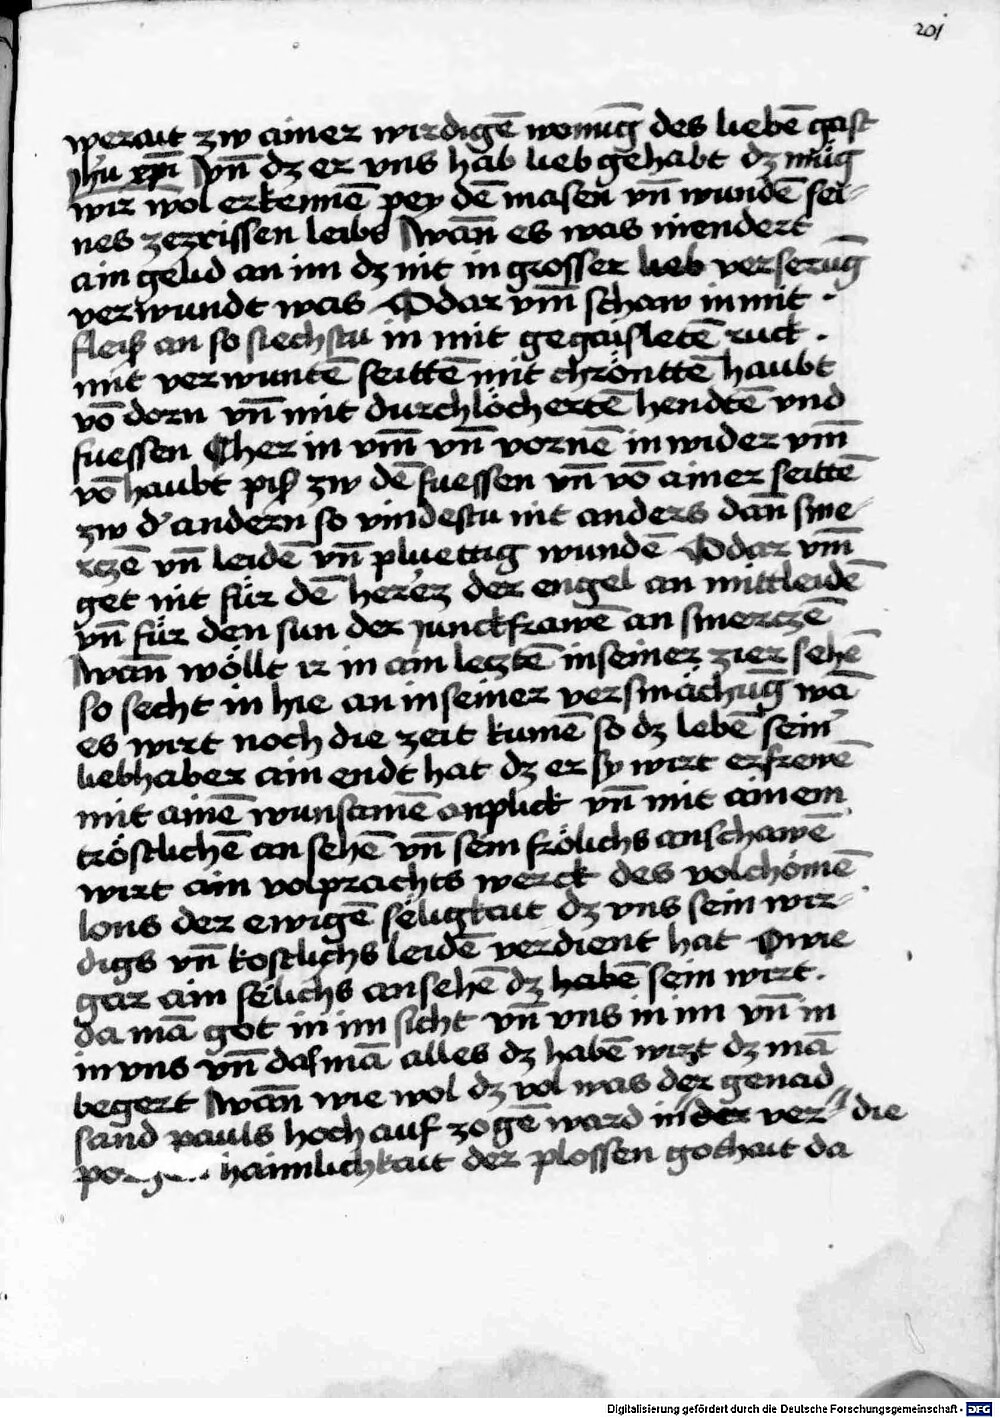 201
werait zw ainer wirdigē wonūg des liebē gast
Jhū xpī vn̄ dz er vns hab lieb gehabt dz mūg
wir wol erkennē pey dē masen vn̄ wundē sei-
nes zezrissen leibs wān es was niendert
ain gelid an im dz nit in grosser lieb versertūg
verwundt was Odar vm̄ schaw in mit .
fleiß an so siechstu in mit gegaisletē ruck .
mit verwuntē seittē mit chrönttē haubt
vō dorn vn̄ mit durchlöchertē hendtē vnd
fuessen Cher in vm̄ vn̄ vornē in wider vm̄
vō haubt piß zw dē fuessen vn̄ vō ainer seittē
zw d' andern so vindestu nit anders dān sme-
rczē vn̄ leidē vn̄ pluettig wundē Odar vm̄
get nit für dē herez der engel an mittleidē
vn̄ für den sun der junckfrawē an smerczē
wān wöllt ir in am leztē in seiner zier sehē
so secht in hie an in seiner versmächūg wā
es wirt noch die zeit kumē so dz lebē sein'
liebhaber ain endt hat dz er sy wirt erfrewē
mit ainē wunsamē anplick vn̄ mit ainem
tröstlichē an sehē vn̄ sein frölichs anschawē
wirt ain volprachts werck des volchömē
lons der ewigē säligkait dz vns sein wir-
digs vn̄ kostlichs leidē verdient hat O wie
gar ain sëlichs an sehē dz habē sein wirt .
da mā got in im sicht vn̄ vns in im vn̄ in
in vns vn̄ das mā alles dz habē wirt dz mā
begert wān wie wol dz vol was der genad
sand pauls hoch auf zogē ward in der ver- die
haimlichkait der plossen gothait da
Digitalisierung gefördert durch die Deutsche Forschungsgemeinschaft - DFG